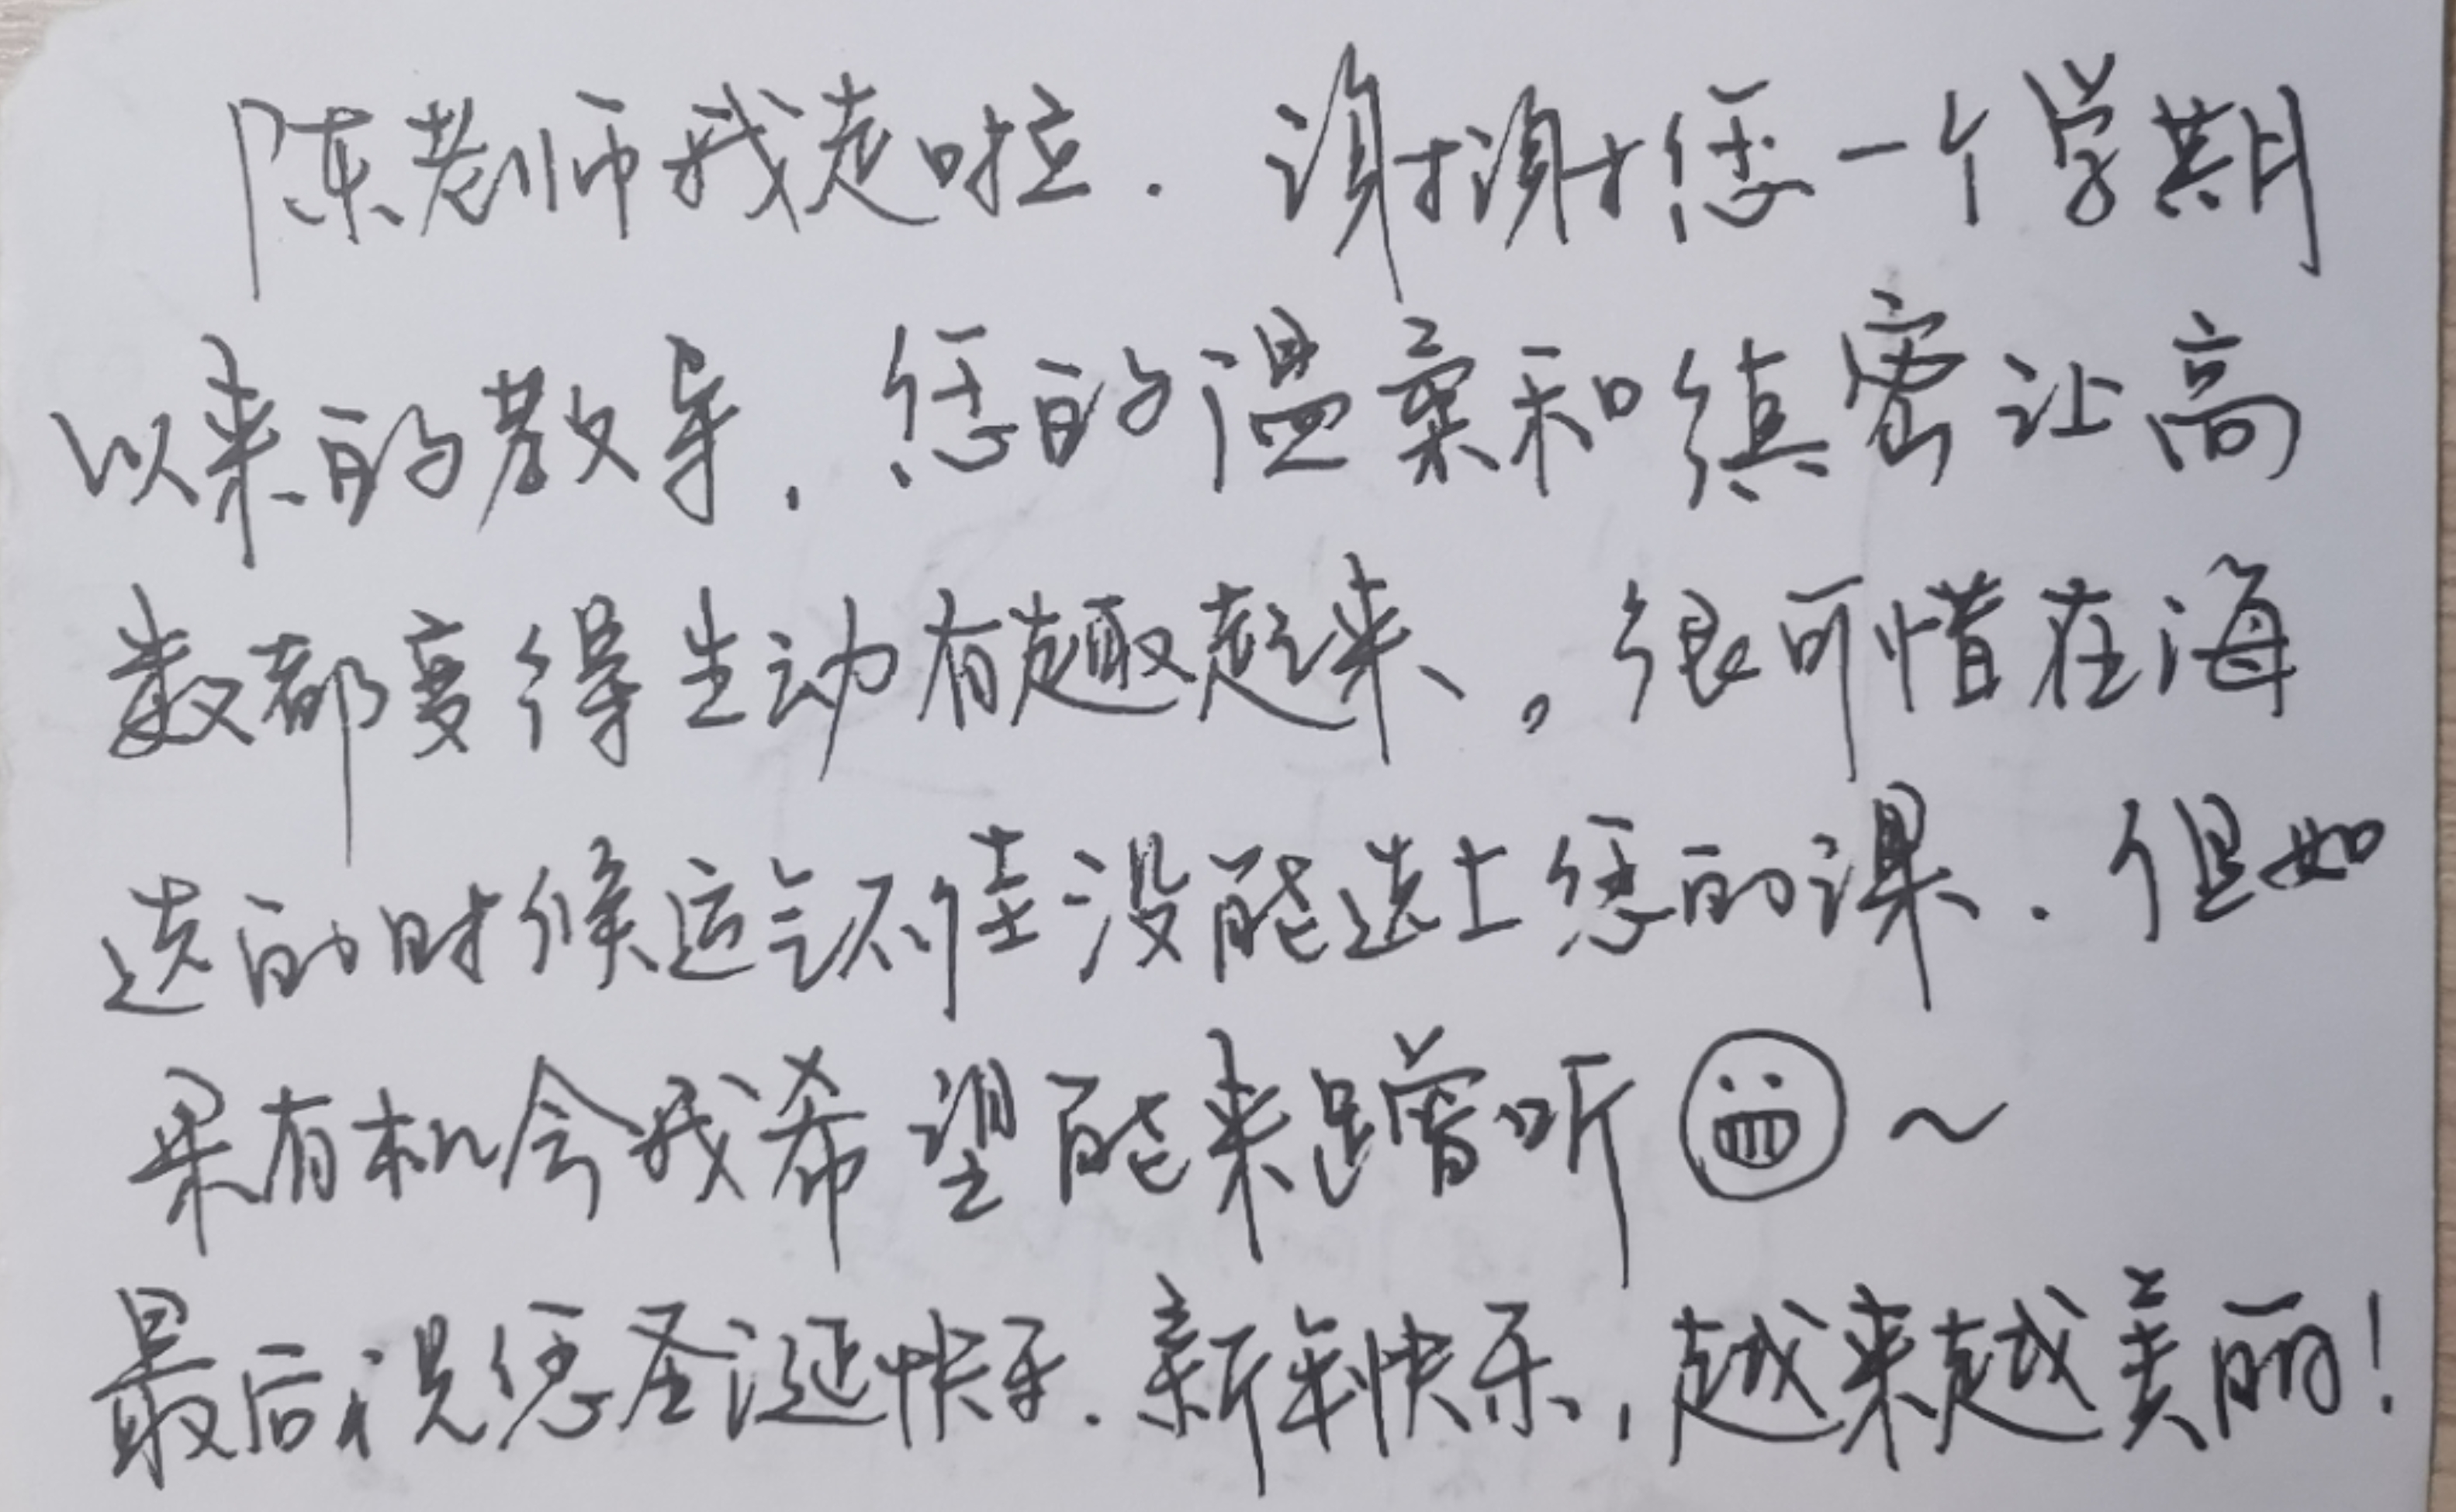 陈老师我走啦.谢谢您一个学期
以来的教导,您的温柔和缜密让高
数都变得生动有趣起来。很可惜在海
选的时候运气不佳没能选上您的课.但如
果有机会我希望能来蹭听~
最后祝您圣诞快乐.新年快乐,越来越美丽!